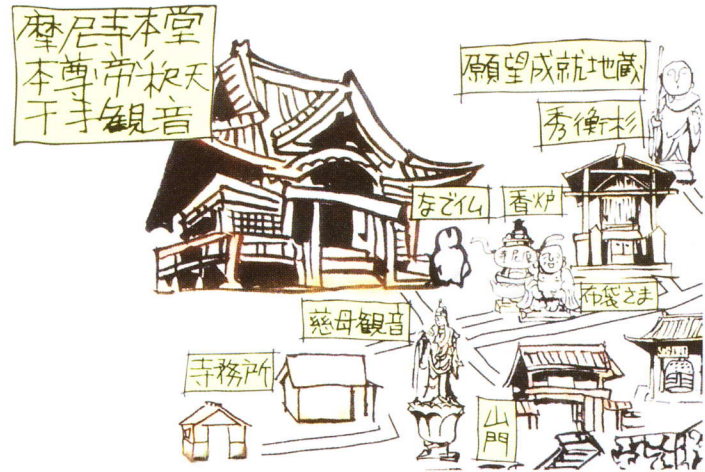 摩尼寺本堂
本尊・帝釈天
千手観音
願望成就地蔵
秀衡杉
なで仏
香炉
布袋さま
慈母観音
寺務所
山門